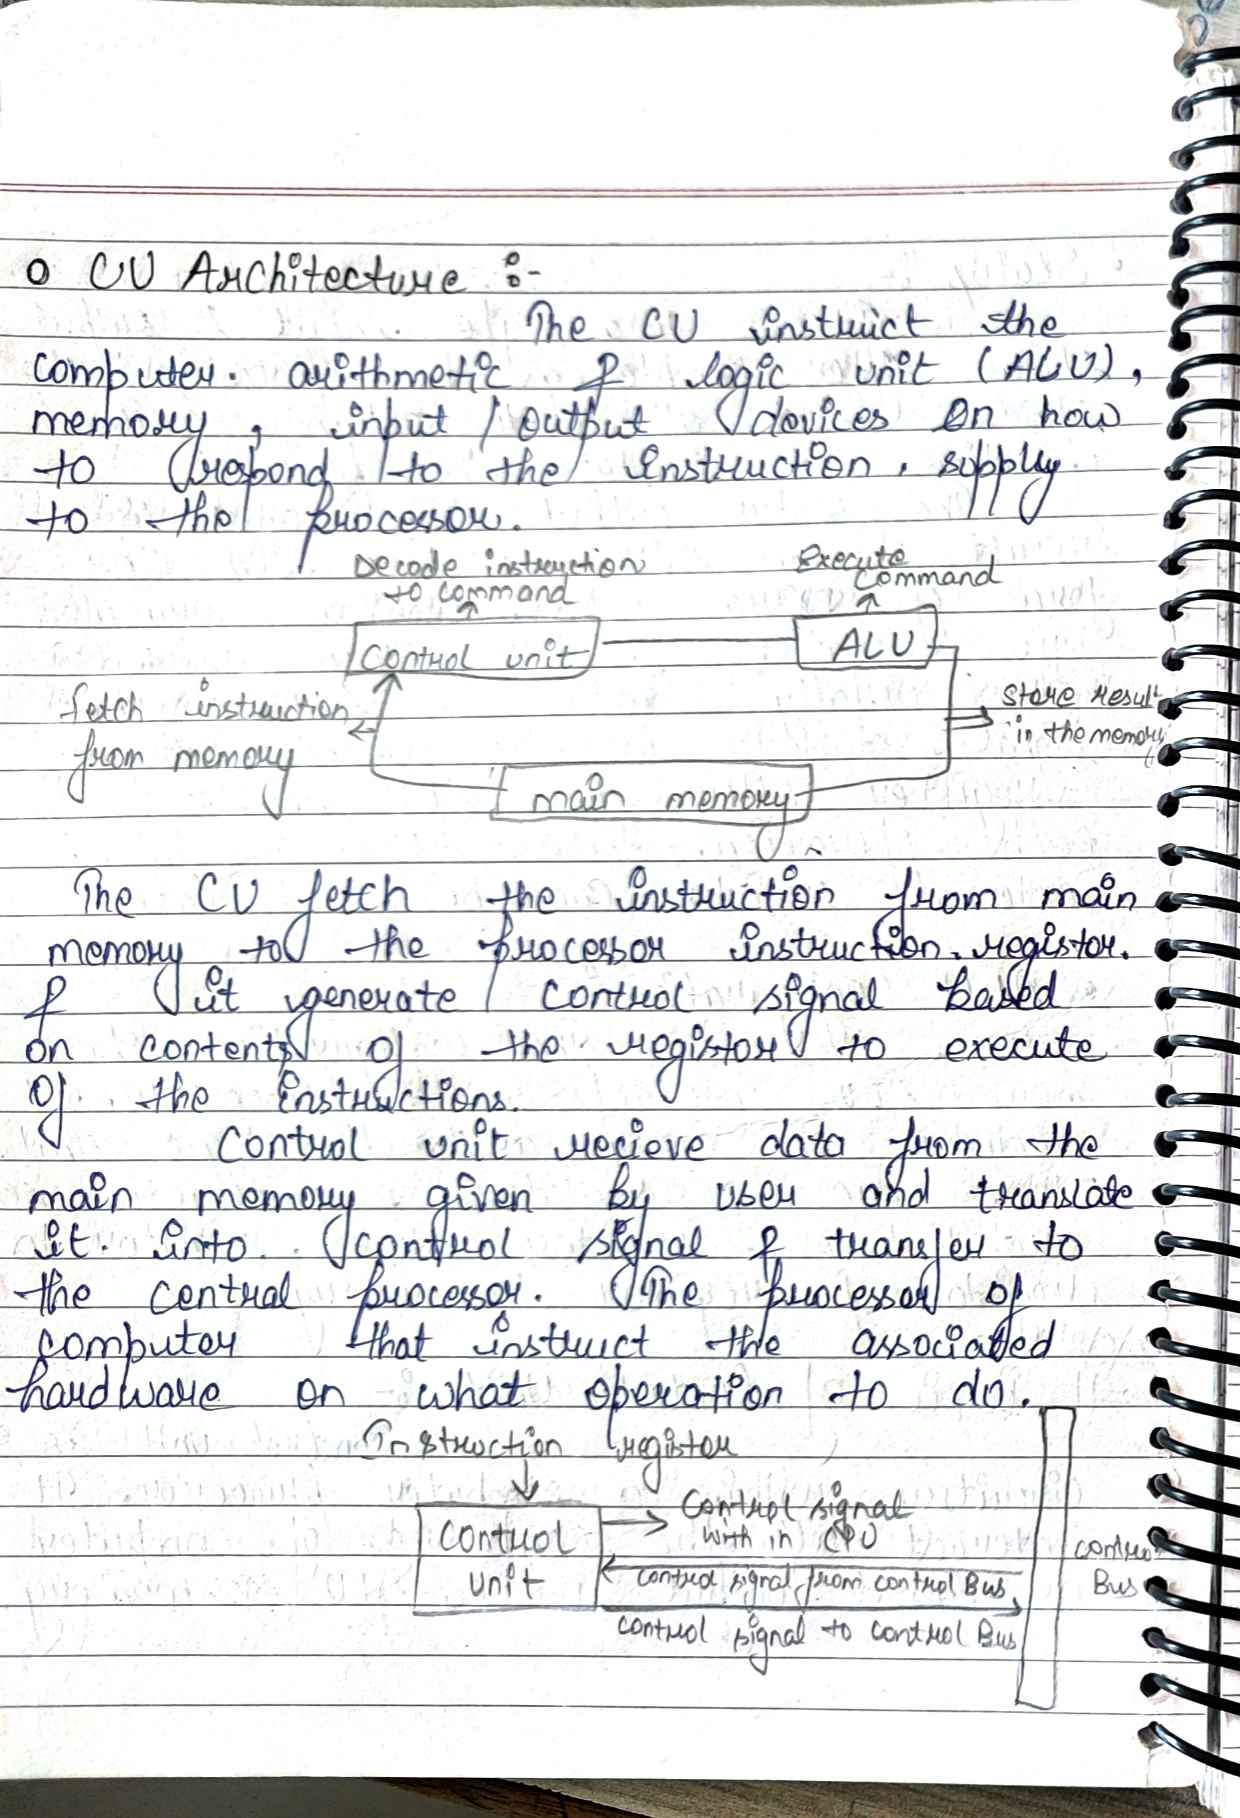 o CU Architecture :-
The CU instruct the
computer. arithmetic & logic unit (ALU),
memory, input / output devices on how
to respond to the instruction, supply
to the processor.
Decode instruction
to command
Execute
Command
Control unit
ALU
fetch instruction
from memory
store result
in the memory
main memory
The CU fetch the instruction from main
memory to the processor instruction. registor.
& it generate control signal based
on contents of the registor to execute
of the instructions.
Control unit recieve data from the
main memory given by user and translate
it. into. control signal & transfer to
the central processor. The processor of
computer that instruct the associated
hardware on what operation to do.
Instruction register
Control
unit
Control signal
with in CPU
control signal from control Bus
control signal to control Bus
control
Bus